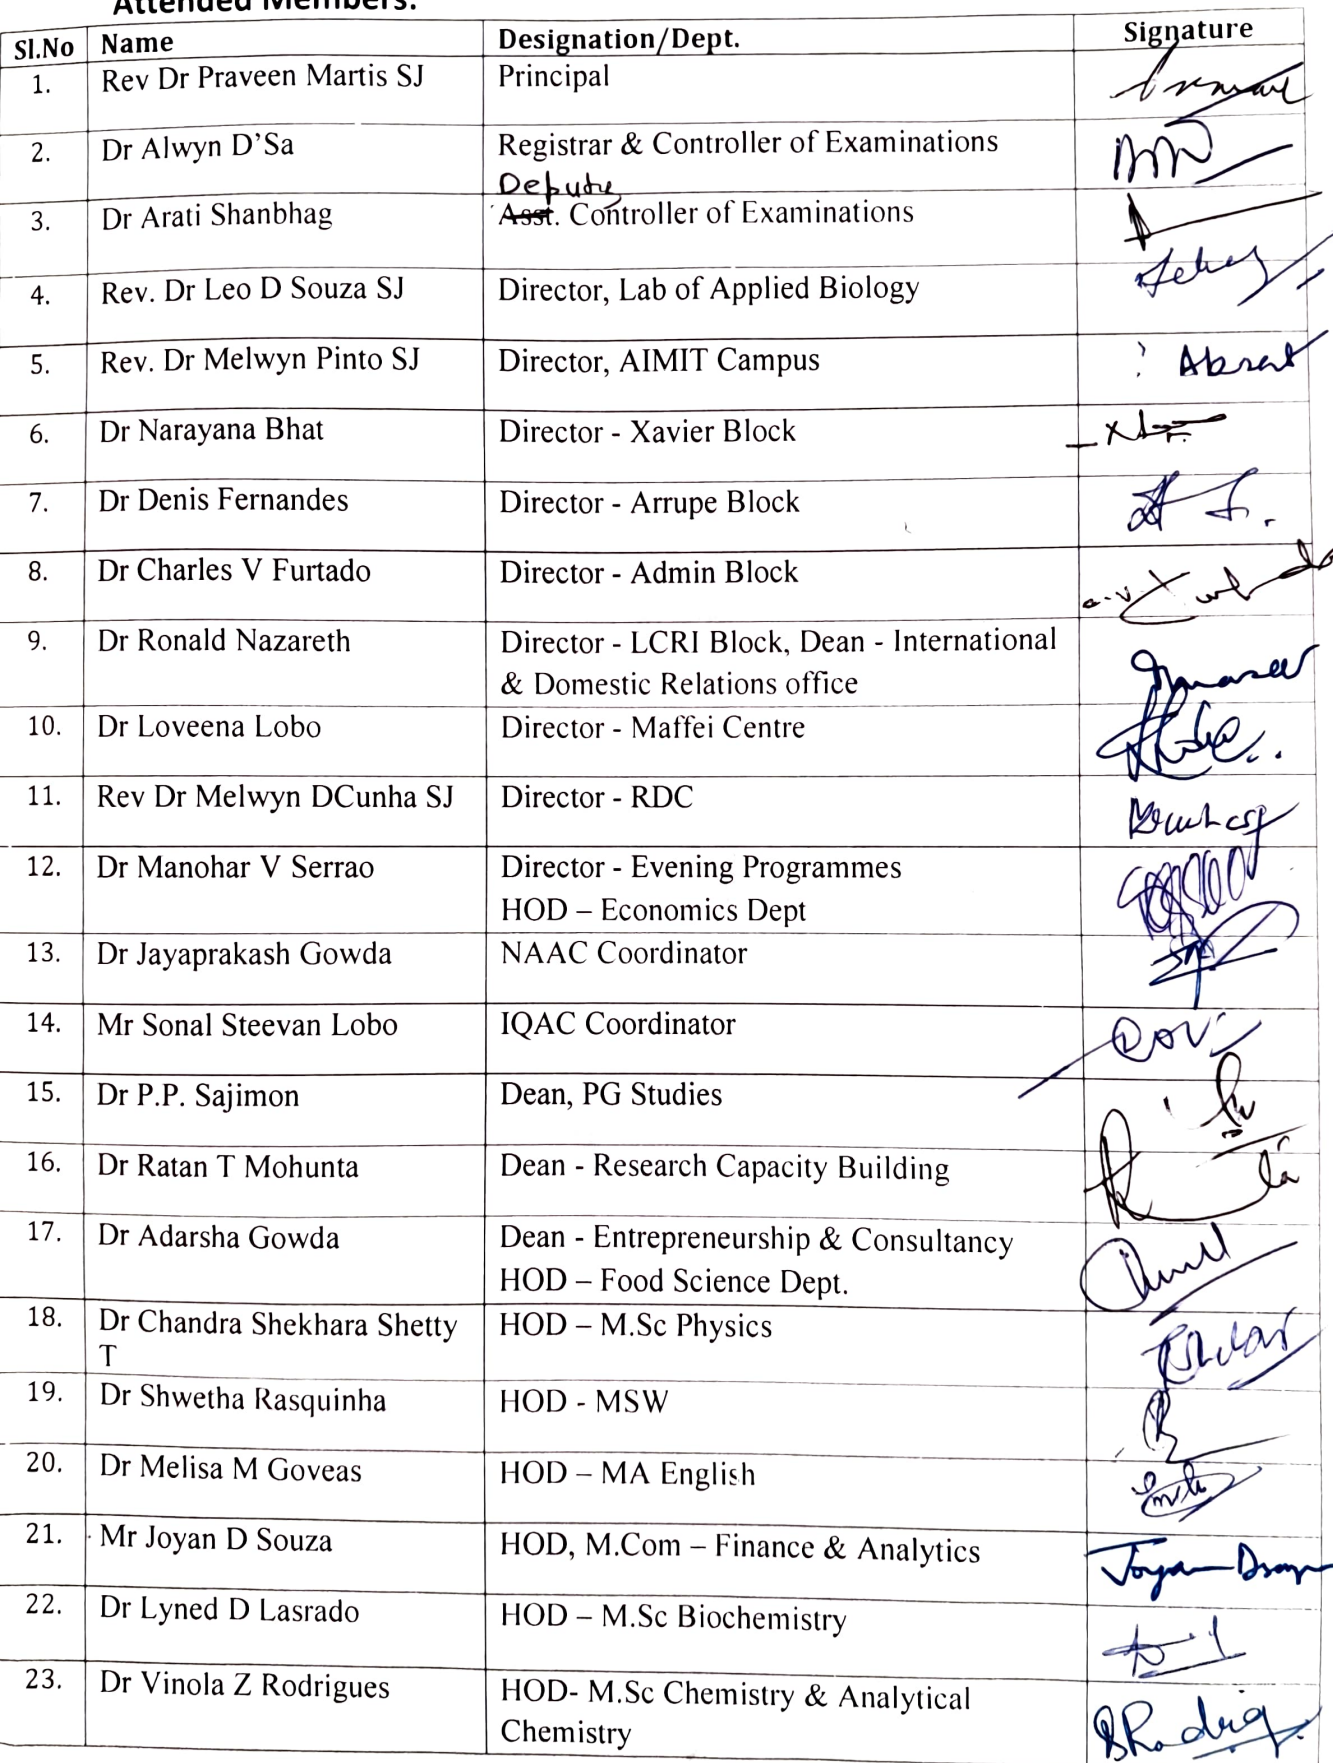 Attended Members:
Sl.No Name Designation/Dept. Signature
1. Rev Dr Praveen Martis SJ Principal
2. Dr Alwyn D'Sa Registrar & Controller of Examinations
Deputy
3. Dr Arati Shanbhag Asst. Controller of Examinations
4. Rev. Dr Leo D Souza SJ Director, Lab of Applied Biology
5. Rev. Dr Melwyn Pinto SJ Director, AIMIT Campus : Absent
6. Dr Narayana Bhat Director - Xavier Block
7. Dr Denis Fernandes Director - Arrupe Block
8. Dr Charles V Furtado Director - Admin Block
9. Dr Ronald Nazareth Director - LCRI Block, Dean - International
& Domestic Relations office
10. Dr Loveena Lobo Director - Maffei Centre
11. Rev Dr Melwyn DCunha SJ Director - RDC
12. Dr Manohar V Serrao Director - Evening Programmes
HOD – Economics Dept
13. Dr Jayaprakash Gowda NAAC Coordinator
14. Mr Sonal Steevan Lobo IQAC Coordinator
15. Dr P.P. Sajimon Dean, PG Studies
16. Dr Ratan T Mohunta Dean - Research Capacity Building
17. Dr Adarsha Gowda Dean - Entrepreneurship & Consultancy
HOD – Food Science Dept.
18. Dr Chandra Shekhara Shetty HOD – M.Sc Physics
T
19. Dr Shwetha Rasquinha HOD - MSW
20. Dr Melisa M Goveas HOD – MA English
21. Mr Joyan D Souza HOD, M.Com – Finance & Analytics
22. Dr Lyned D Lasrado HOD – M.Sc Biochemistry
23. Dr Vinola Z Rodrigues HOD- M.Sc Chemistry & Analytical
Chemistry